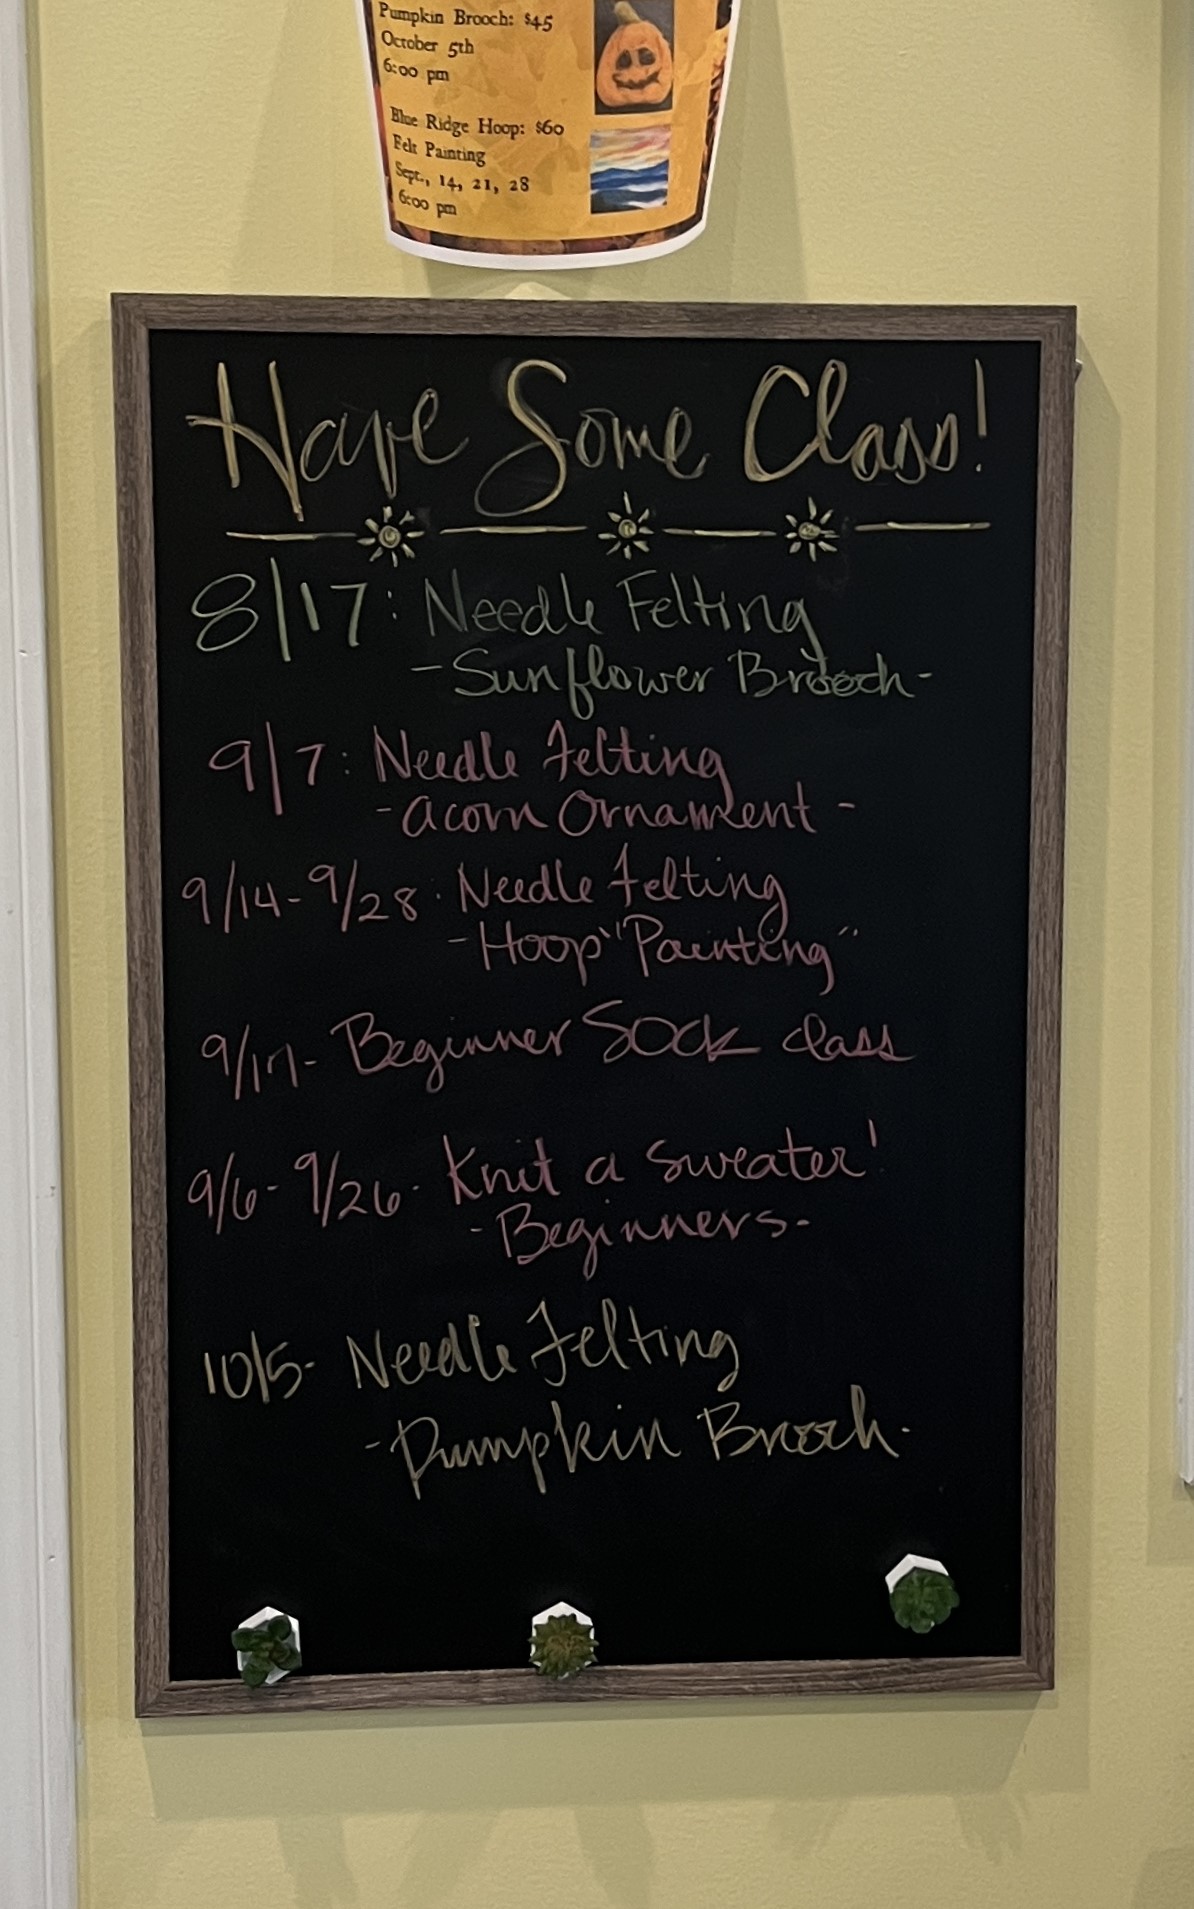 Pumpkin Brooch: $45
October 5th
6:00 pm
Blue Ridge Hoop: $60
Felt Painting
Sept., 14, 21, 28
6:00 pm
Have Some Class!
8/17: Needle Felting
-Sunflower Brooch-
9/7: Needle Felting
-Acorn Ornament-
9/14-9/28: Needle Felting
-Hoop "Painting"
9/17- Beginner Sock class
9/6-9/26- Knit a Sweater!
-Beginners-
10/5- Needle Felting
-Pumpkin Brooch-